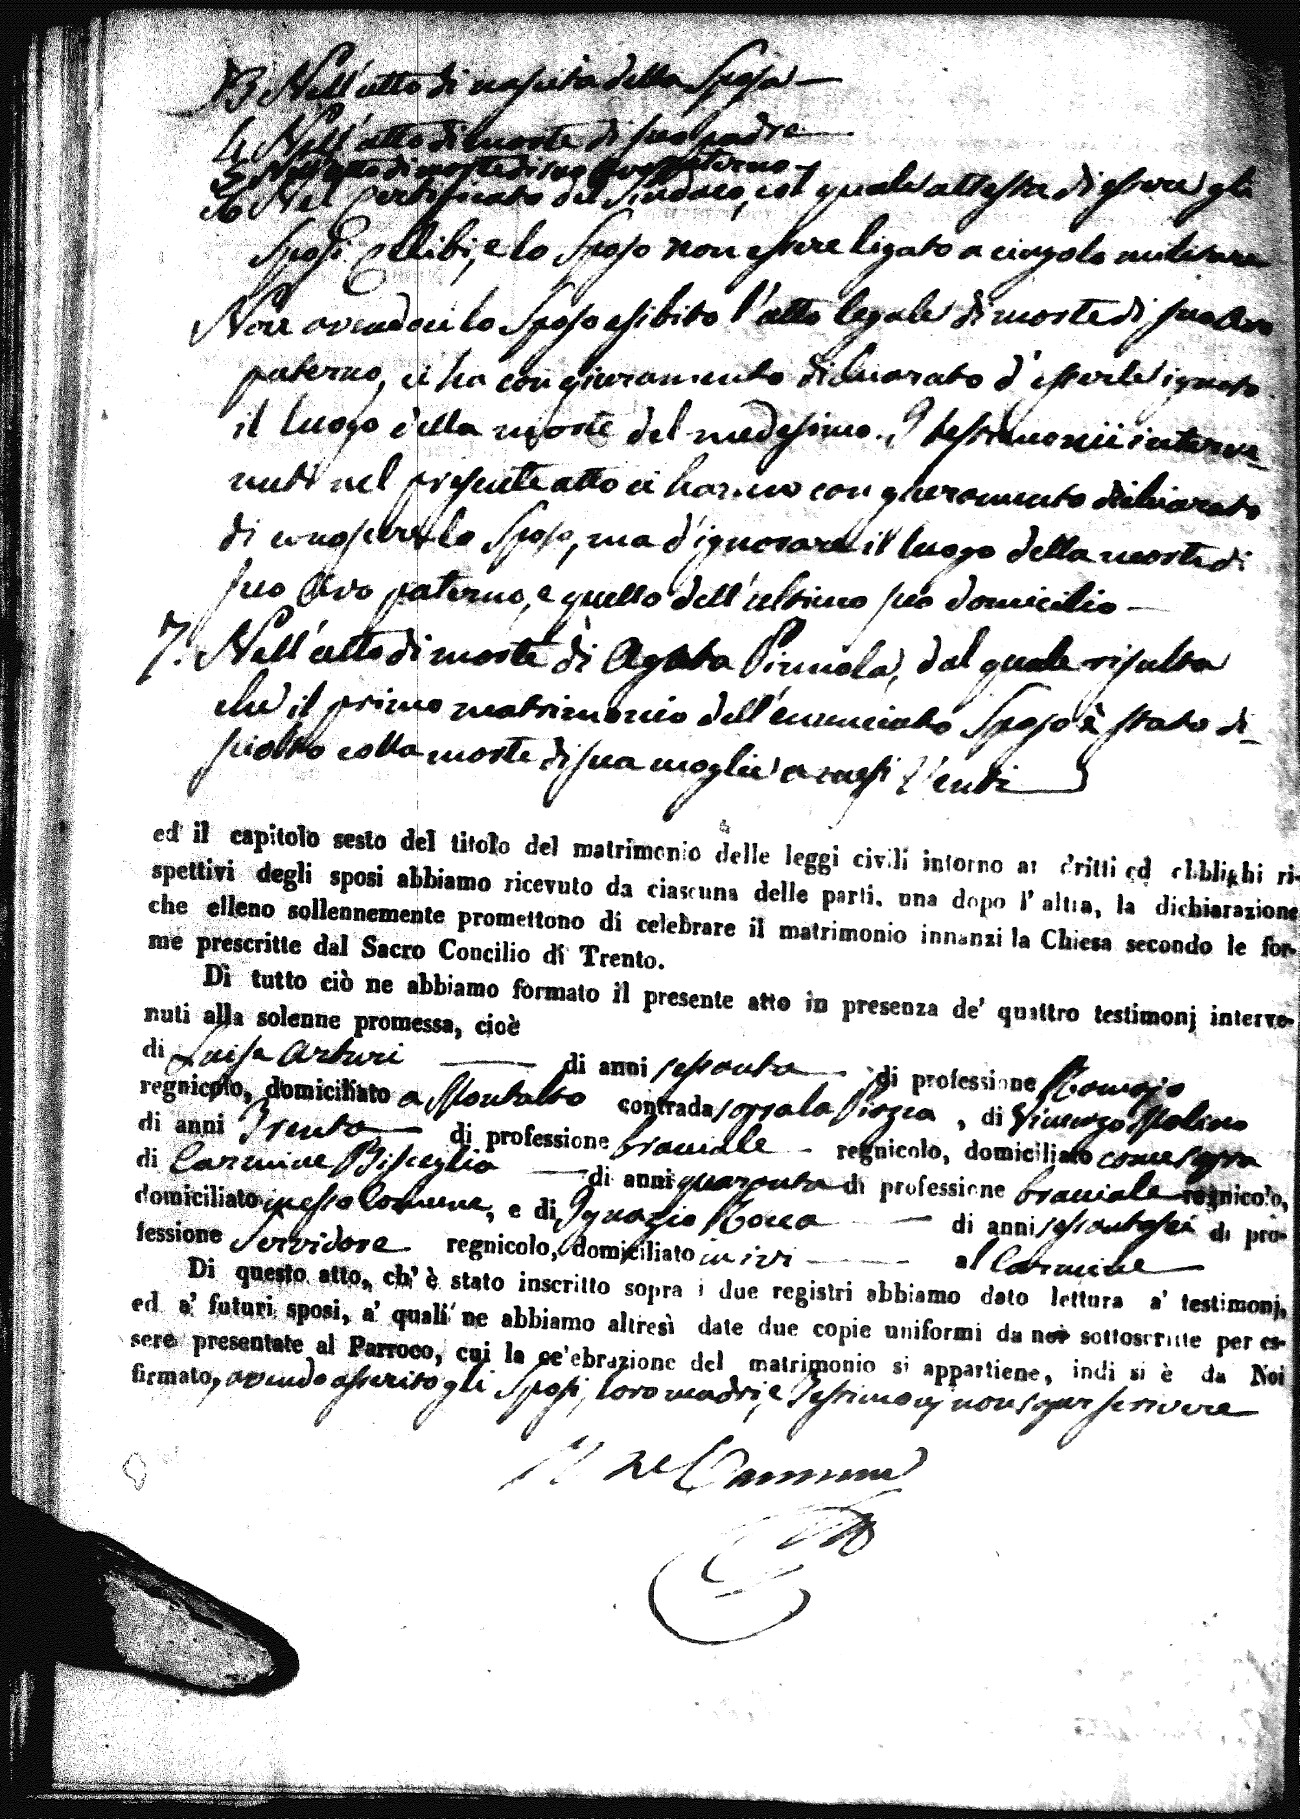 3 Nell'atto di nascita della Sposa —
4 Nell'atto di morte di suo padre —
5 Nell'atto di morte di suo avo paterno —
6 Nel Certificato del Sindaco, col quale attesta di essere gli
Sposi Celibi, e lo Sposo non essere ligato a cingolo militare
Non avendoci lo Sposo esibito l'atto legale di morte di suo Avo
paterno, ci ha con giuramento dichiarato d'esserle ignoto
il luogo della morte del medesimo. I testimonii interve-
nuti nel presente atto ci hanno con giuramento dichiarato
di conoscere lo Sposo, ma d'ignorare il luogo della morte di
suo Avo paterno, e quello dell'ultimo suo domicilio —
7. Nell'atto di morte di Agata Pirmola, dal quale risulta
che il primo matrimonio dell'enunciato Sposo è stato di-
sciolto colla morte di sua moglie a mesi Venti
ed il capitolo sesto del titolo del matrimonio delle leggi civili intorno ai dritti ed obblighi ri-
spettivi degli sposi abbiamo ricevuto da ciascuna delle parti, una dopo l'altra, la dichiarazione
che elleno sollennemente promettono di celebrare il matrimonio innanzi la Chiesa secondo le for-
me prescritte dal Sacro Concilio di Trento.
Di tutto ciò ne abbiamo formato il presente atto in presenza de' quattro testimonj interve-
nuti alla solenne promessa, cioè
di Luise Arturi — di anni sessanta — di professione
regnicolo, domiciliato a Montalto contrada sopra la Piazza, di Vincenzo Molino
di anni Trenta — di professione braciale — regnicolo, domiciliato come sopra
di Carmine Bisceglia — di anni quaranta di professione braciale regnicolo,
domiciliato in esso Comune, e di Ignazio Rocca — di anni sessantasei di pro-
fessione Servidore regnicolo, domiciliato in ivi — al Carmine —
Di questo atto, ch'è stato inscritto sopra i due registri abbiamo dato lettura a' testimonj,
ed a' futuri sposi, a' quali ne abbiamo altresì date due copie uniformi da noi sottoscritte per es-
sere presentate al Parroco, cui la celebrazione del matrimonio si appartiene, indi si è da Noi
firmato, avendo asserito gli Sposi, loro madri, e Testimonj non saper scrivere